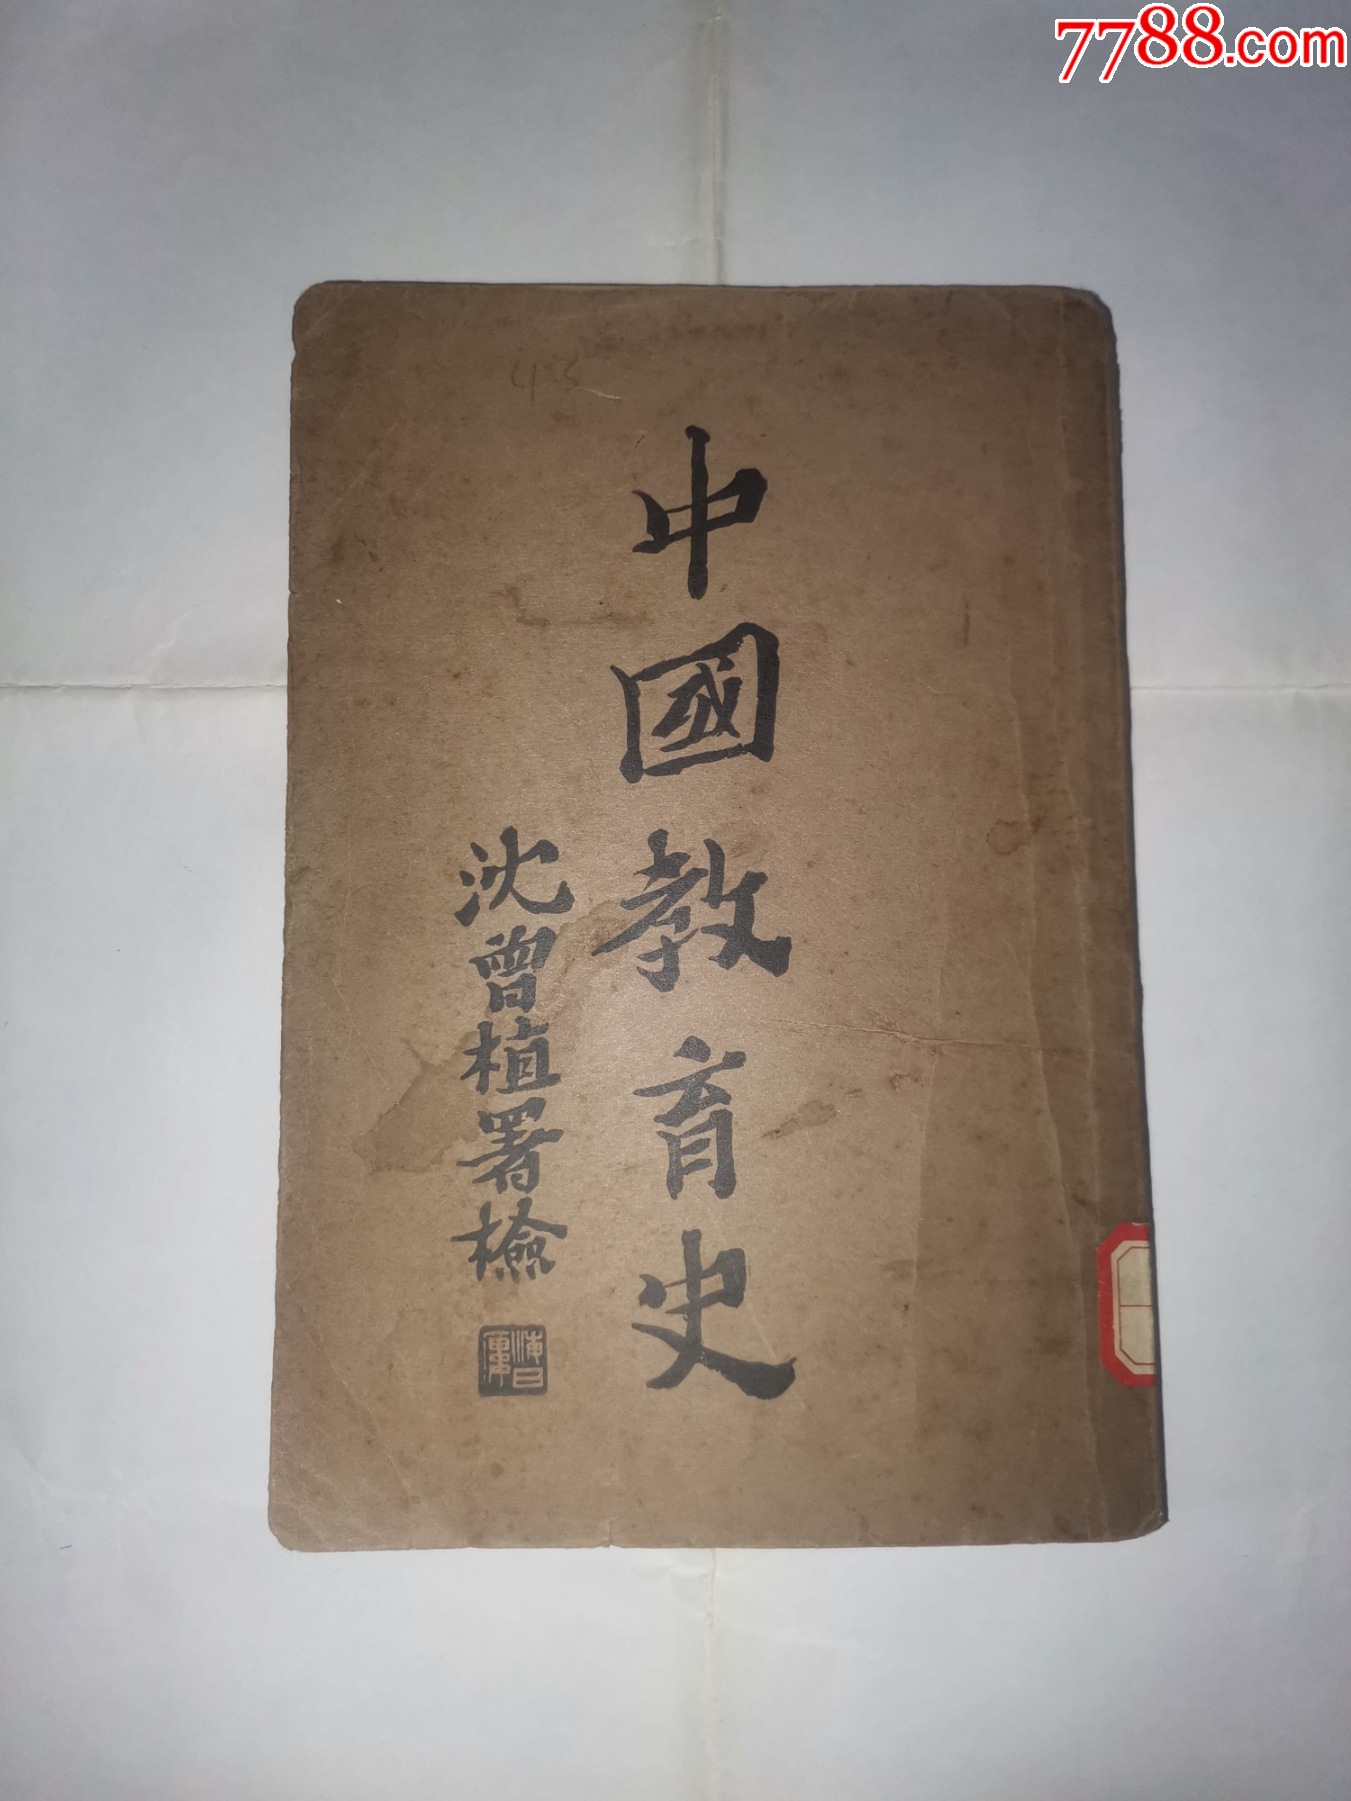 7788.com
45
中國教育史
沈曾植署檢
海日廔